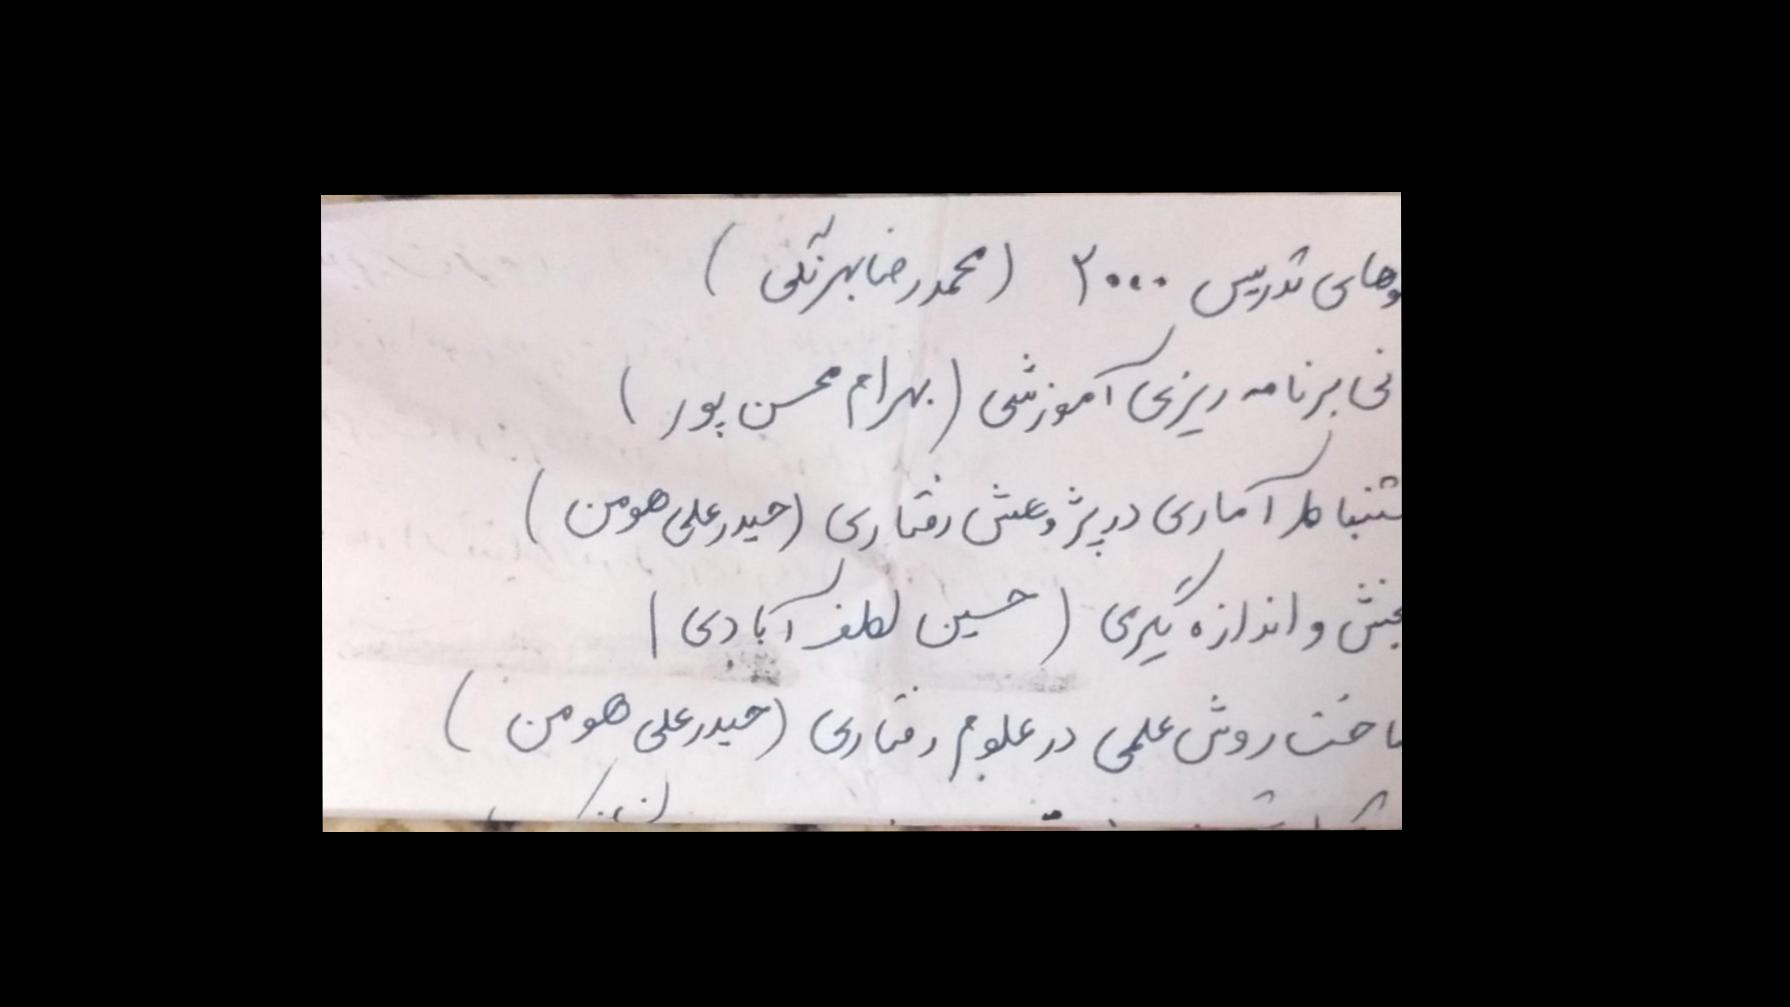 وهای تدریس ۲۰۰۰ (محمدرضا بهرنگی)
نی برنامه ریزی آموزشی (بهرام محسن پور)
ستنباط آماری در پژوهش رفتاری (حیدرعلی هومن)
نجش و اندازه گیری (حسین لطف آبادی)
ناخت روش علمی در علوم رفتاری (حیدرعلی هومن)